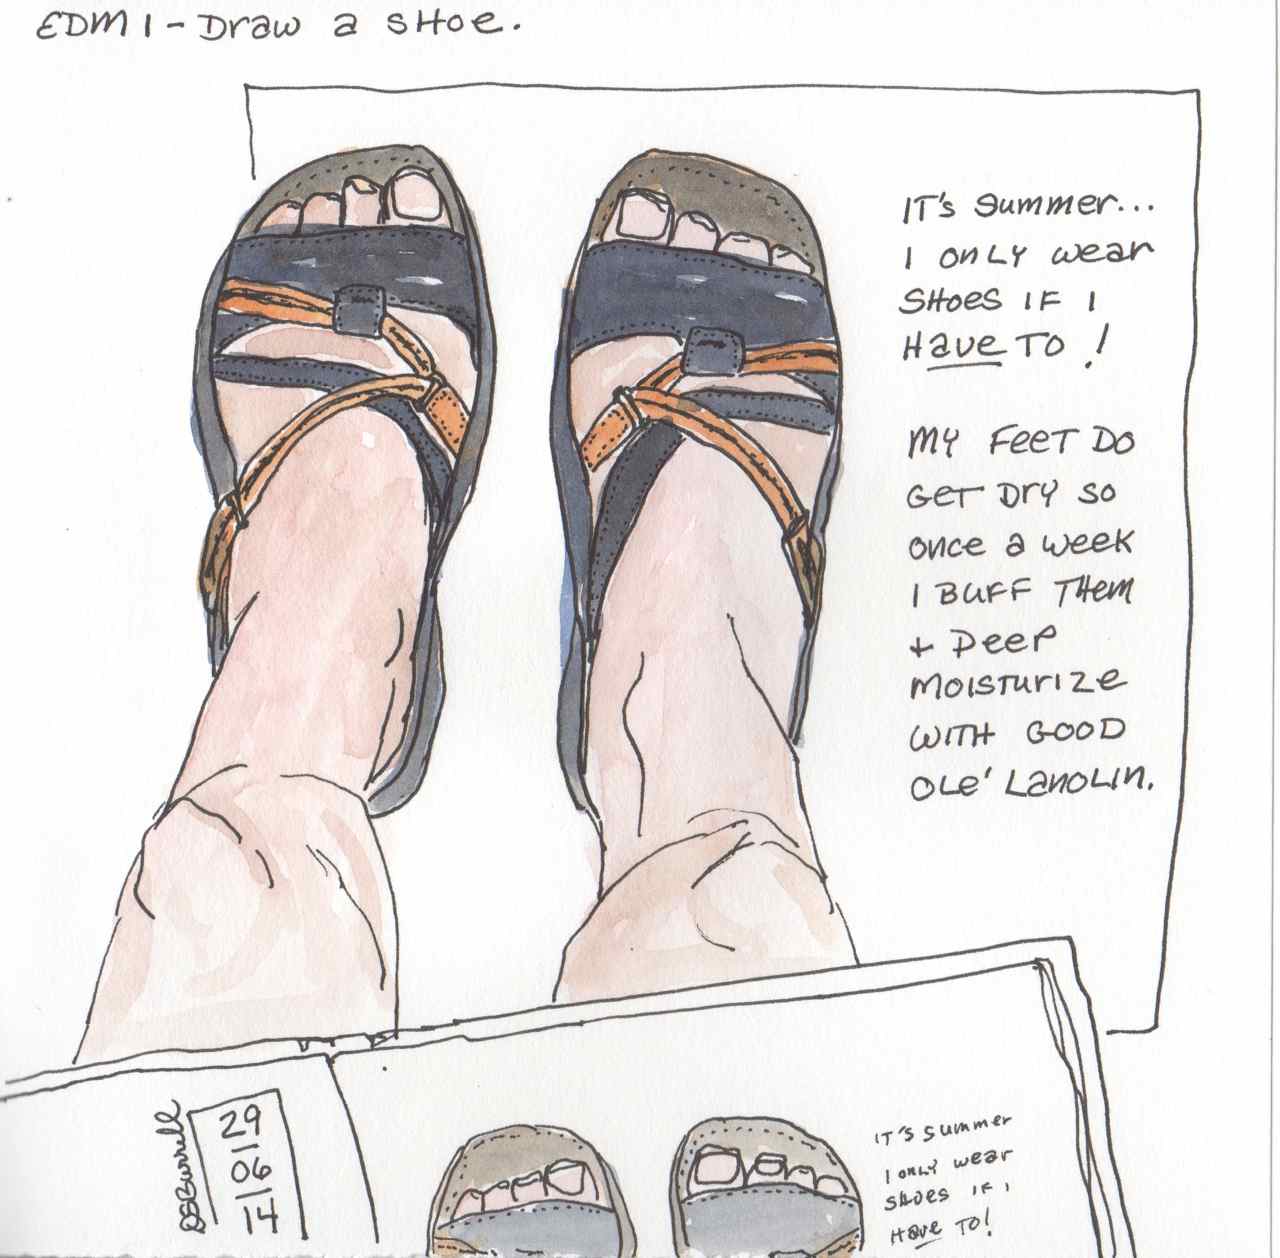 EDM 1 - Draw a SHoe.
IT's Summer...
I ONLY wear
SHoes IF I
Have TO!
MY FeeT DO
GeT Dry so
once a week
I BUFF THem
+ Deep
MOISTUrIZe
WITH GOOD
OLe' LanOLIn.
DSBurrill
29
06
14
IT's summer
I ONLY wear
SHoes IF I
Have TO!